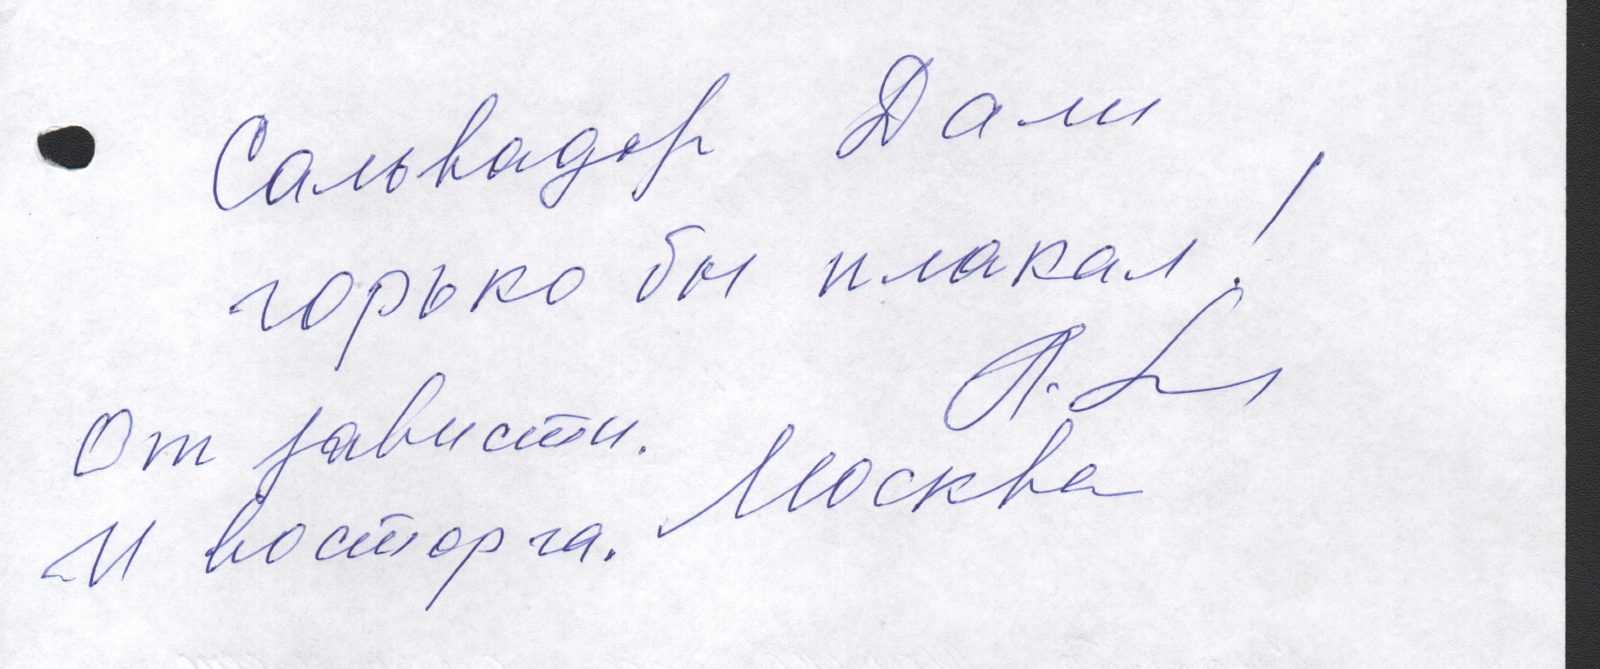 Сальвадор Дали
горько бы плакал!
От зависти.
И восторга.
Москва